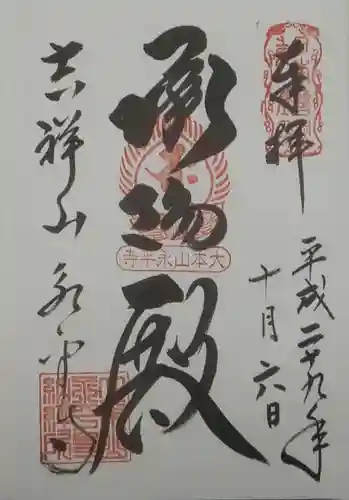 奉拝
平成二十九年
十月六日
承陽殿
大本山永平寺
吉祥山 永平寺